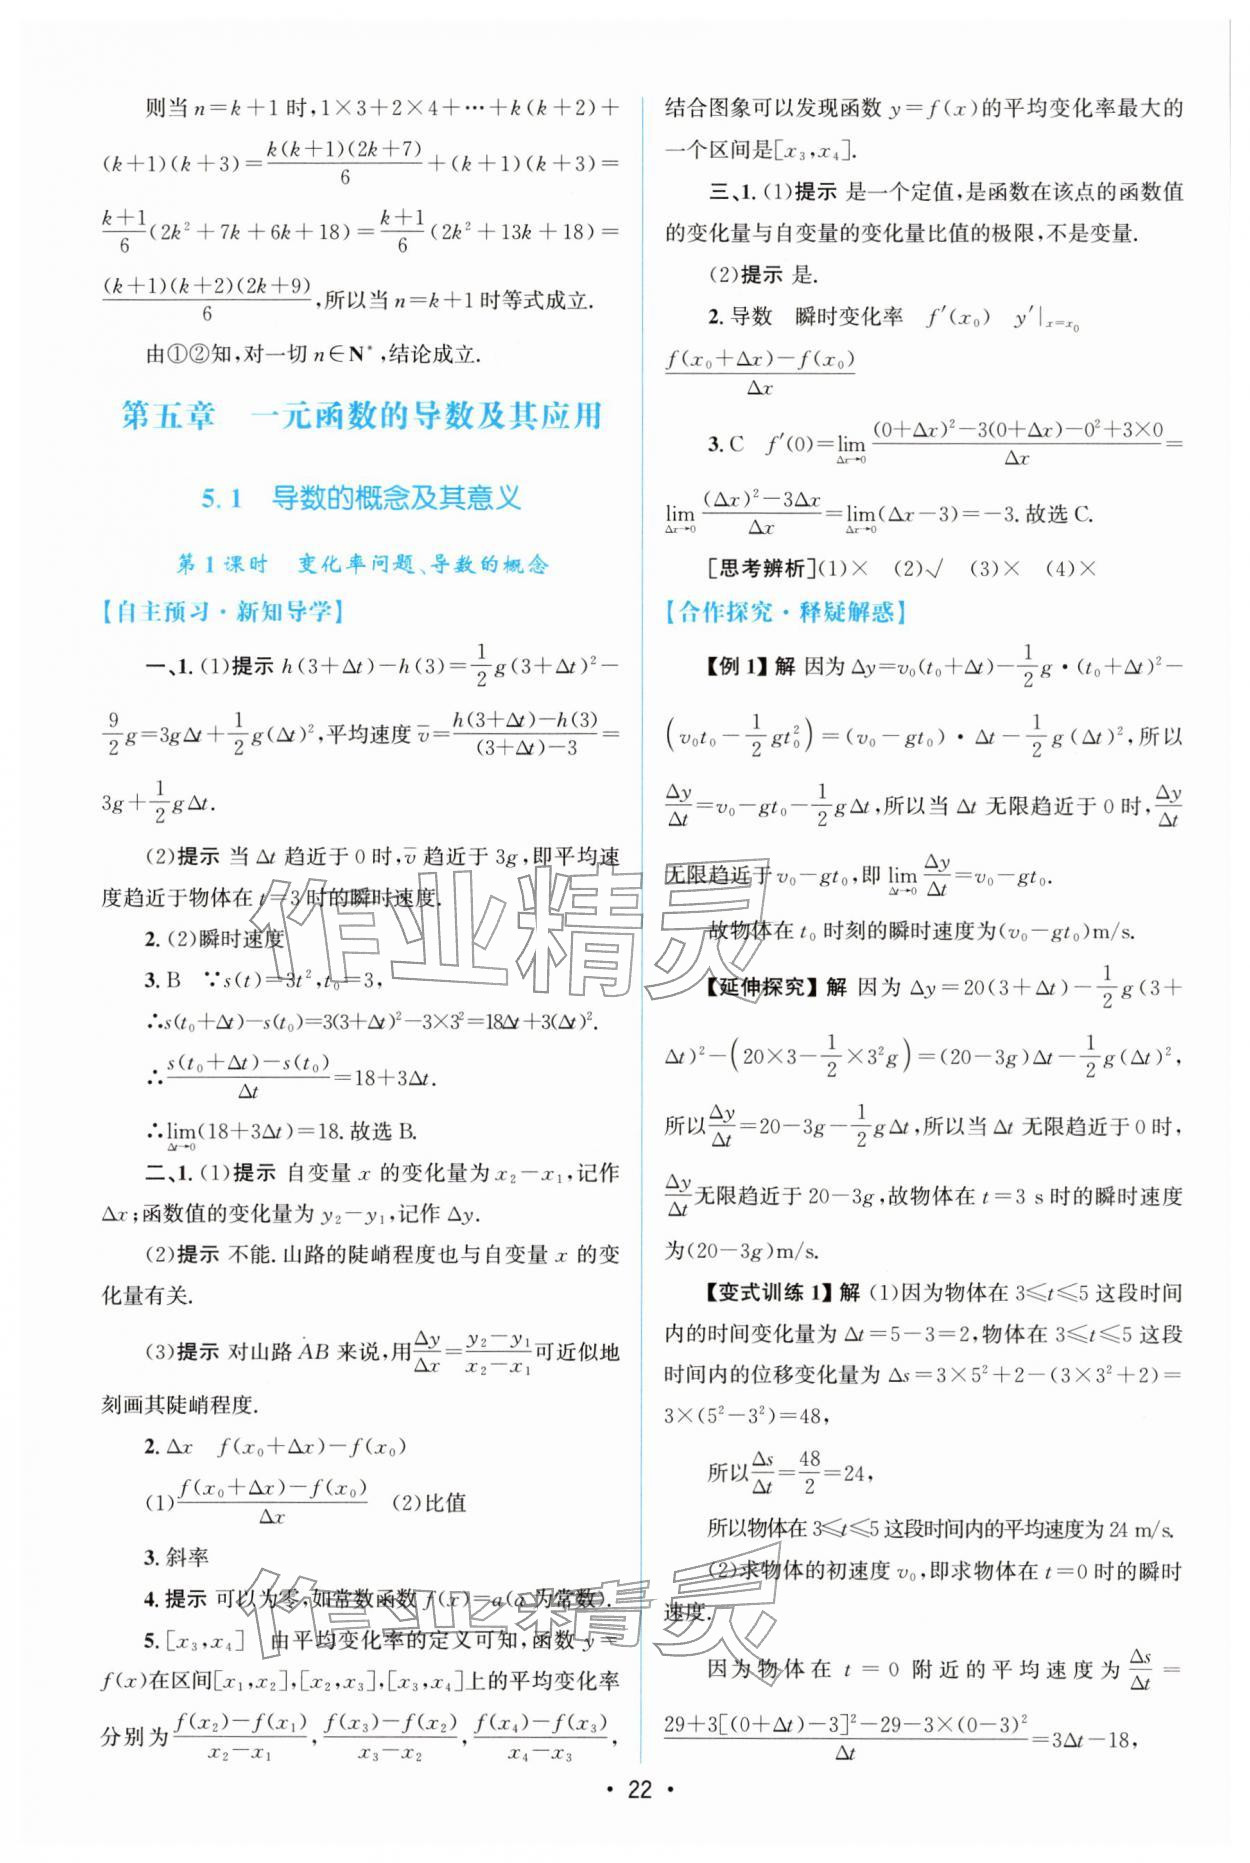 则当 n=k+1 时,1×3+2×4+…+k(k+2)+
(k+1)(k+3)=\frac{k(k+1)(2k+7)}{6}+(k+1)(k+3)=
\frac{k+1}{6}(2k²+7k+6k+18)=\frac{k+1}{6}(2k²+13k+18)=
\frac{(k+1)(k+2)(2k+9)}{6},所以当 n=k+1 时等式成立.
由①②知,对一切 n∈N*,结论成立.
第五章 一元函数的导数及其应用
5.1 导数的概念及其意义
第1课时 变化率问题、导数的概念
【自主预习·新知导学】
一、1.(1)提示 h(3+Δt)-h(3)=\frac{1}{2}g(3+Δt)²-
\frac{9}{2}g=3gΔt+\frac{1}{2}g(Δt)²,平均速度 \bar{v}=\frac{h(3+Δt)-h(3)}{(3+Δt)-3}=
3g+\frac{1}{2}gΔt.
(2)提示 当 Δt 趋近于 0 时,\bar{v} 趋近于 3g,即平均速
度趋近于物体在 t=3 时的瞬时速度.
2.(2)瞬时速度
3.B ∵s(t)=3t²,t₀=3,
∴s(t₀+Δt)-s(t₀)=3(3+Δt)²-3×3²=18Δt+3(Δt)².
∴\frac{s(t₀+Δt)-s(t₀)}{Δt}=18+3Δt.
∴\lim_{Δt→0}(18+3Δt)=18.故选 B.
二、1.(1)提示 自变量 x 的变化量为 x₂-x₁,记作
Δx;函数值的变化量为 y₂-y₁,记作 Δy.
(2)提示 不能.山路的陡峭程度也与自变量 x 的变
化量有关.
(3)提示 对山路 AB 来说,用\frac{Δy}{Δx}=\frac{y₂-y₁}{x₂-x₁}可近似地
刻画其陡峭程度.
2.Δx f(x₀+Δx)-f(x₀)
(1)\frac{f(x₀+Δx)-f(x₀)}{Δx} (2)比值
3.斜率
4.提示 可以为零,如常数函数 f(x)=a(a 为常数).
5.[x₃,x₄] 由平均变化率的定义可知,函数 y=
f(x)在区间[x₁,x₂],[x₂,x₃],[x₃,x₄]上的平均变化率
分别为\frac{f(x₂)-f(x₁)}{x₂-x₁},\frac{f(x₃)-f(x₂)}{x₃-x₂},\frac{f(x₄)-f(x₃)}{x₄-x₃},
结合图象可以发现函数 y=f(x)的平均变化率最大的
一个区间是[x₃,x₄].
三、1.(1)提示 是一个定值,是函数在该点的函数值
的变化量与自变量的变化量比值的极限,不是变量.
(2)提示 是.
2.导数 瞬时变化率 f′(x₀) y′|_{x=x₀}
\frac{f(x₀+Δx)-f(x₀)}{Δx}
3.C f′(0)=\lim_{Δx→0}\frac{(0+Δx)²-3(0+Δx)-0²+3×0}{Δx}=
\lim_{Δx→0}\frac{(Δx)²-3Δx}{Δx}=\lim_{Δx→0}(Δx-3)=-3.故选 C.
[思考辨析](1)× (2)√ (3)× (4)×
【合作探究·释疑解惑】
【例 1】解 因为 Δy=v₀(t₀+Δt)-\frac{1}{2}g·(t₀+Δt)²-
(v₀t₀-\frac{1}{2}gt₀²)=(v₀-gt₀)·Δt-\frac{1}{2}g(Δt)²,所以
\frac{Δy}{Δt}=v₀-gt₀-\frac{1}{2}gΔt,所以当 Δt 无限趋近于 0 时,\frac{Δy}{Δt}
无限趋近于 v₀-gt₀,即\lim_{Δt→0}\frac{Δy}{Δt}=v₀-gt₀.
故物体在 t₀ 时刻的瞬时速度为(v₀-gt₀)m/s.
【延伸探究】解 因为 Δy=20(3+Δt)-\frac{1}{2}g(3+
Δt)²-(20×3-\frac{1}{2}×3²g)=(20-3g)Δt-\frac{1}{2}g(Δt)²,
所以\frac{Δy}{Δt}=20-3g-\frac{1}{2}gΔt,所以当 Δt 无限趋近于 0 时,
\frac{Δy}{Δt}无限趋近于 20-3g,故物体在 t=3 s 时的瞬时速度
为(20-3g)m/s.
【变式训练 1】解 (1)因为物体在 3≤t≤5 这段时间
内的时间变化量为 Δt=5-3=2,物体在 3≤t≤5 这段
时间内的位移变化量为 Δs=3×5²+2-(3×3²+2)=
3×(5²-3²)=48,
所以\frac{Δs}{Δt}=\frac{48}{2}=24,
所以物体在 3≤t≤5 这段时间内的平均速度为 24 m/s.
(2)求物体的初速度 v₀,即求物体在 t=0 时的瞬时
速度.
因为物体在 t=0 附近的平均速度为\frac{Δs}{Δt}=
\frac{29+3[(0+Δt)-3]²-29-3×(0-3)²}{Δt}=3Δt-18,
· 22 ·
作业精灵
作业精灵